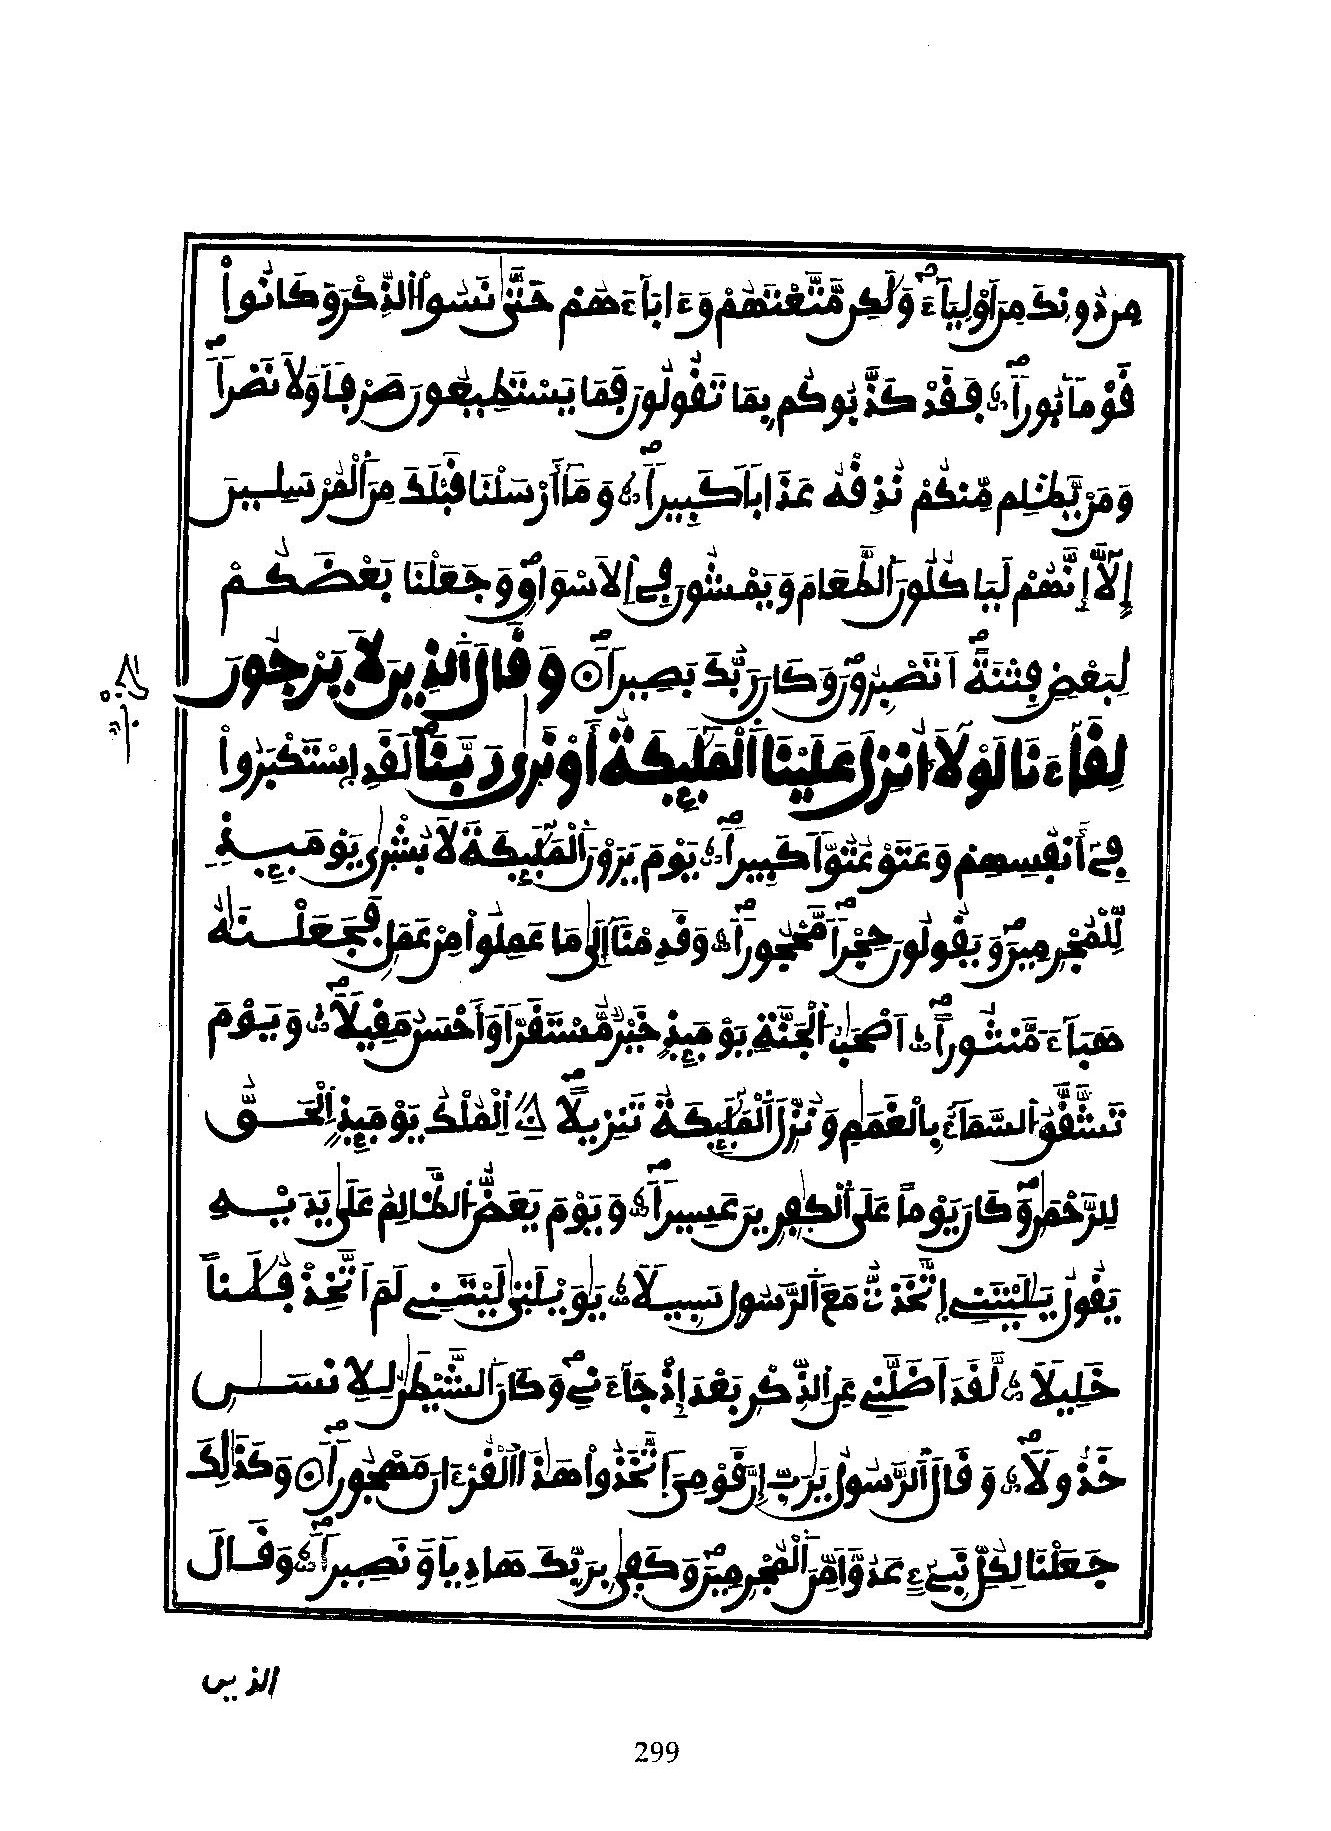 مِن دُونِكَ مِنَ اَوْلِيَآءَ وَلَٰكِن مَّتَّعْتَهُمْ وَءَابَآءَهُمْ حَتَّىٰ نَسُوا۟ اُ۬لذِّكْرَ وَكَانُوا۟
قَوْماَۢ بُوراٗ فَقَدْ كَذَّبُوكُم بِمَا تَقُولُونَ فَمَا يَسْتَطِيعُونَ صَرْفاٗ وَلَا نَصْراٗ
وَمَنْ يَّظْلِم مِّنكُمْ نُذِقْهُ عَذَاباٗ كَبِيراٗ وَمَآ أَرْسَلْنَا قَبْلَكَ مِنَ اَ۬لْمُرْسَلِينَ
إِلَّآ إِنَّهُمْ لَيَاكُلُونَ اَ۬لطَّعَامَ وَيَمْشُونَ فِي اِ۬لَاسْوَاقِ وَجَعَلْنَا بَعْضَكُمْ
لِبَعْضٖ فِتْنَةً اَتَصْبِرُونَ وَكَانَ رَبُّكَ بَصِيراٗ وَقَالَ اَ۬لذِينَ لَا يَرْجُونَ
لِقَآءَنَا لَوْلَآ أُنزِلَ عَلَيْنَا اَ۬لْمَلَٰٓئِكَةُ أَوْ نَرَىٰ رَبَّنَا لَقَدِ اِسْتَكْبَرُوا۟
فِےٓ أَنفُسِهِمْ وَعَتَوْ عُتُوّاٗ كَبِيراٗ يَوْمَ يَرَوْنَ اَ۬لْمَلَٰٓئِكَةَ لَا بُشْرَىٰ يَوْمَئِذٖ
لِّلْمُجْرِمِينَ وَيَقُولُونَ حِجْراٗ مَّحْجُوراٗ وَقَدِمْنَآ إِلَىٰ مَا عَمِلُوا۟ مِنْ عَمَلٖ فَجَعَلْنَٰهُ
هَبَآءٗ مَّنثُوراً اَصْحَٰبُ اُ۬لْجَنَّةِ يَوْمَئِذٍ خَيْرٞ مُّسْتَقَرّاٗ وَأَحْسَنُ مَقِيلاٗ وَيَوْمَ
تَشَّقَّقُ اُ۬لسَّمَآءُ بِالْغَمَٰمِ وَنُزِّلَ اَ۬لْمَلَٰٓئِكَةُ تَنزِيلاً اِ۬لْمُلْكُ يَوْمَئِذٍ اِ۬لْحَقُّ
لِلرَّحْمَٰنِ وَكَانَ يَوْماً عَلَى اَ۬لْكٰ۪فِرِينَ عَسِيراٗ وَيَوْمَ يَعَضُّ اُ۬لظَّالِمُ عَلَىٰ يَدَيْهِ
يَقُولُ يَٰلَيْتَنِے اِ۪تَّخَذتُّ مَعَ اَ۬لرَّسُولِ سَبِيلاٗ يَٰوَيْلَتَىٰ لَيْتَنِے لَمَ اَتَّخِذْ فُلَٰناً
خَلِيلاٗ لَّقَدَ اَضَلَّنِے عَنِ اِ۬لذِّكْرِ بَعْدَ إِذْ جَآءَنِے وَكَانَ اَ۬لشَّيْطَٰنُ لِلِانسَٰنِ
خَذُولاٗ وَقَالَ اَ۬لرَّسُولُ يَٰرَبِّ إِنَّ قَوْمِيَ اَ۪تَّخَذُوا۟ هَٰذَا اَ۬لْقُرْءَانَ مَهْجُوراٗ وَكَذَٰلِكَ
جَعَلْنَا لِكُلِّ نَبِےٓءٍ عَدُوّاٗ مِّنَ اَ۬لْمُجْرِمِينَ وَكَفَىٰ بِرَبِّكَ هَادِياٗ وَنَصِيراٗ وَقَالَ
الذين
299